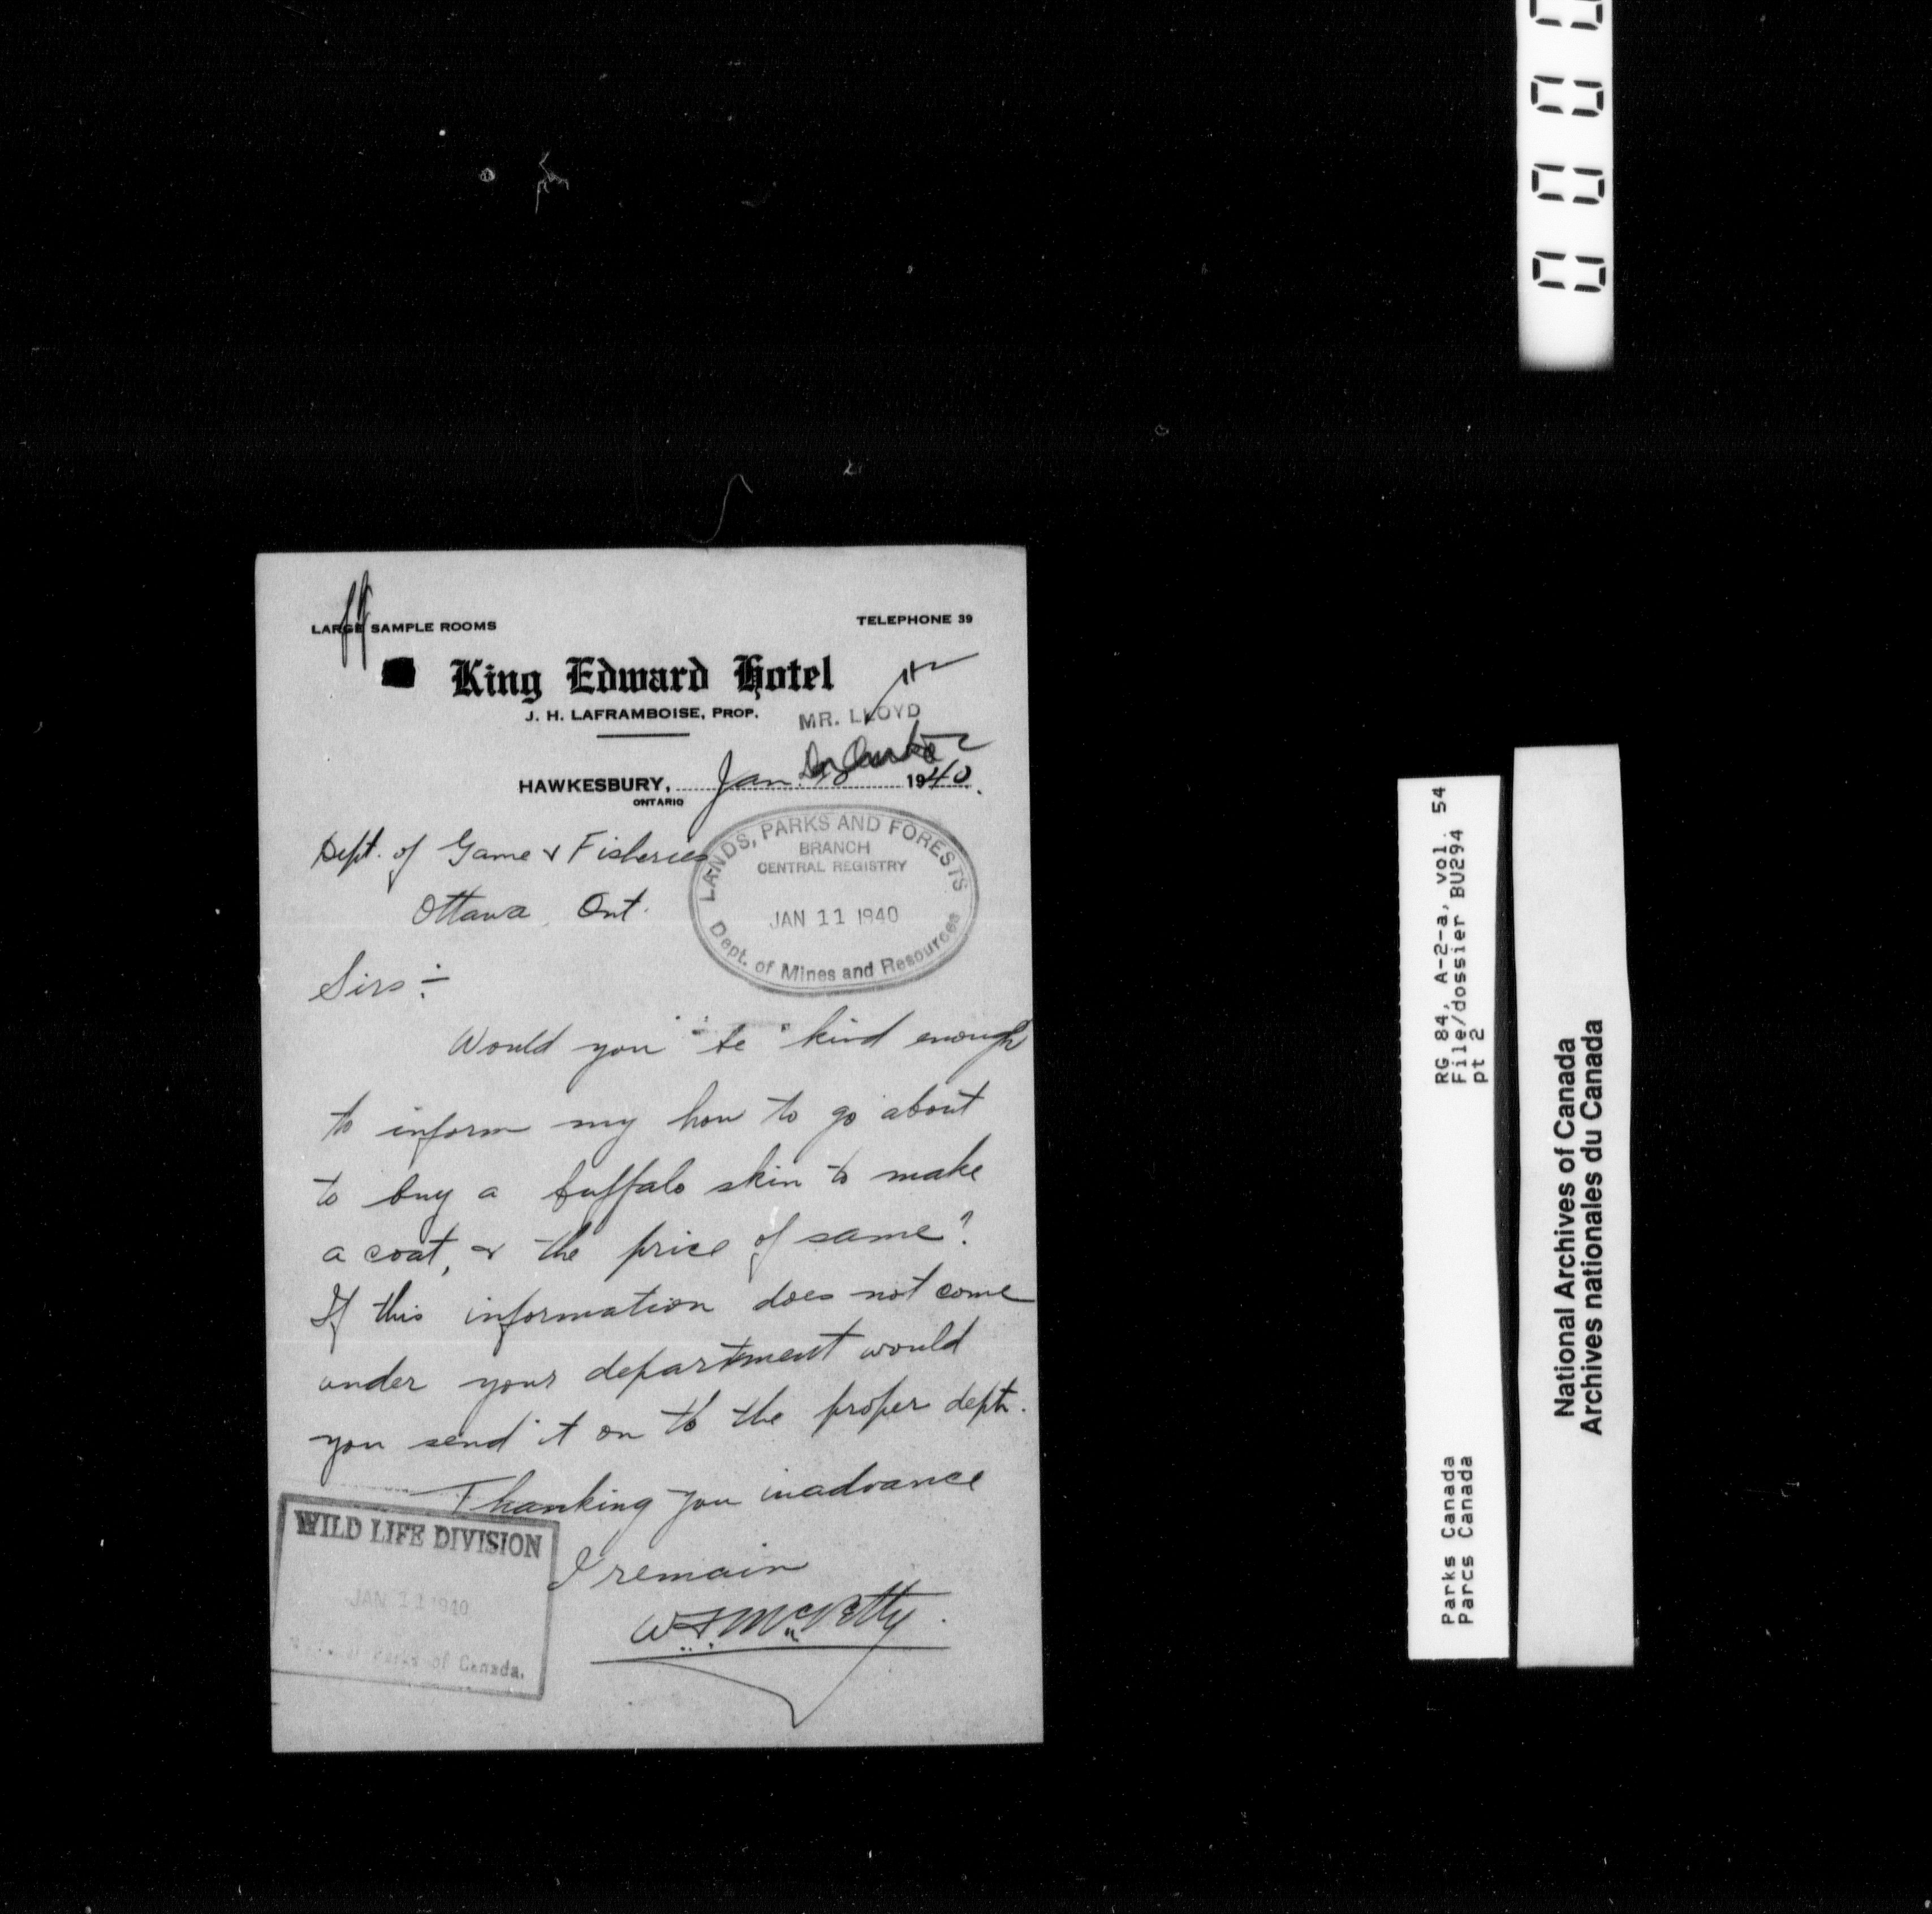 LARGE SAMPLE ROOMS
TELEPHONE 39
King Edward Hotel
J. H. LAFRAMBOISE, PROP.
MR. LLOYD
HAWKESBURY, Jan. 10 1940.
ONTARIO
Dept. of Game & Fisheries
Ottawa, Ont.
LANDS, PARKS AND FORESTS
BRANCH
CENTRAL REGISTRY
JAN 11 1940
Dept. of Mines and Resources
Sirs :-
Would you be kind enough
to inform my how to go about
to buy a buffalo skin to make
a coat, & the price of same?
If this information does not come
under your department would
you send it on to the proper dept.
Thanking you in advance
I remain
WILD LIFE DIVISION
JAN 11 1940
Parks of Canada.
0 0 0 0
RG 84, A-2-a, vol. 54
File/dossier BU294
pt 2
Parks Canada
Parcs Canada
National Archives of Canada
Archives nationales du Canada